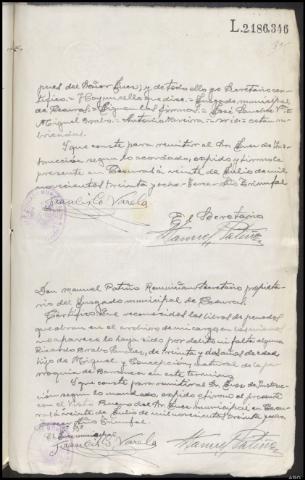 L.2186,346
pues del Señor Juez, y de todo ello yo Secretario cer-
tifico.= Hay un sello que dice.= Juzgado municipal
de = Siguen las firmas.= José
Miguel = Antonio =
Y que conste para remitir al Sr. Juez de Ins-
trucción segun lo acordado, expido y firmo la
presente en a veinte de Julio de mil
novecientos treinta y ocho = Tercer Año Triunfal
Francisco Varela
El Secretario
Manuel Patiño
Don Manuel Patiño Secretario propieta-
rio del Juzgado municipal de
Certifico: Que reconocidos los libros de penados
que obran en el archivo de mi cargo, en los mismos
no aparece lo haya sido por delito ni falta alguna
Ricardo de treinta y dos años de edad
hijo de Miguel y Concepción, natural de la pa-
rroquia de en este término
Y que conste para remitir al Sr. Juez de Instruc-
ción segun lo mandado, expido y firmo el presente
con el Visto Bueno del Sr. Juez municipal en
a veinte de Julio de mil novecientos treinta y ocho
Tercer Año Triunfal
El Juez municipal
Francisco Varela
Manuel Patiño